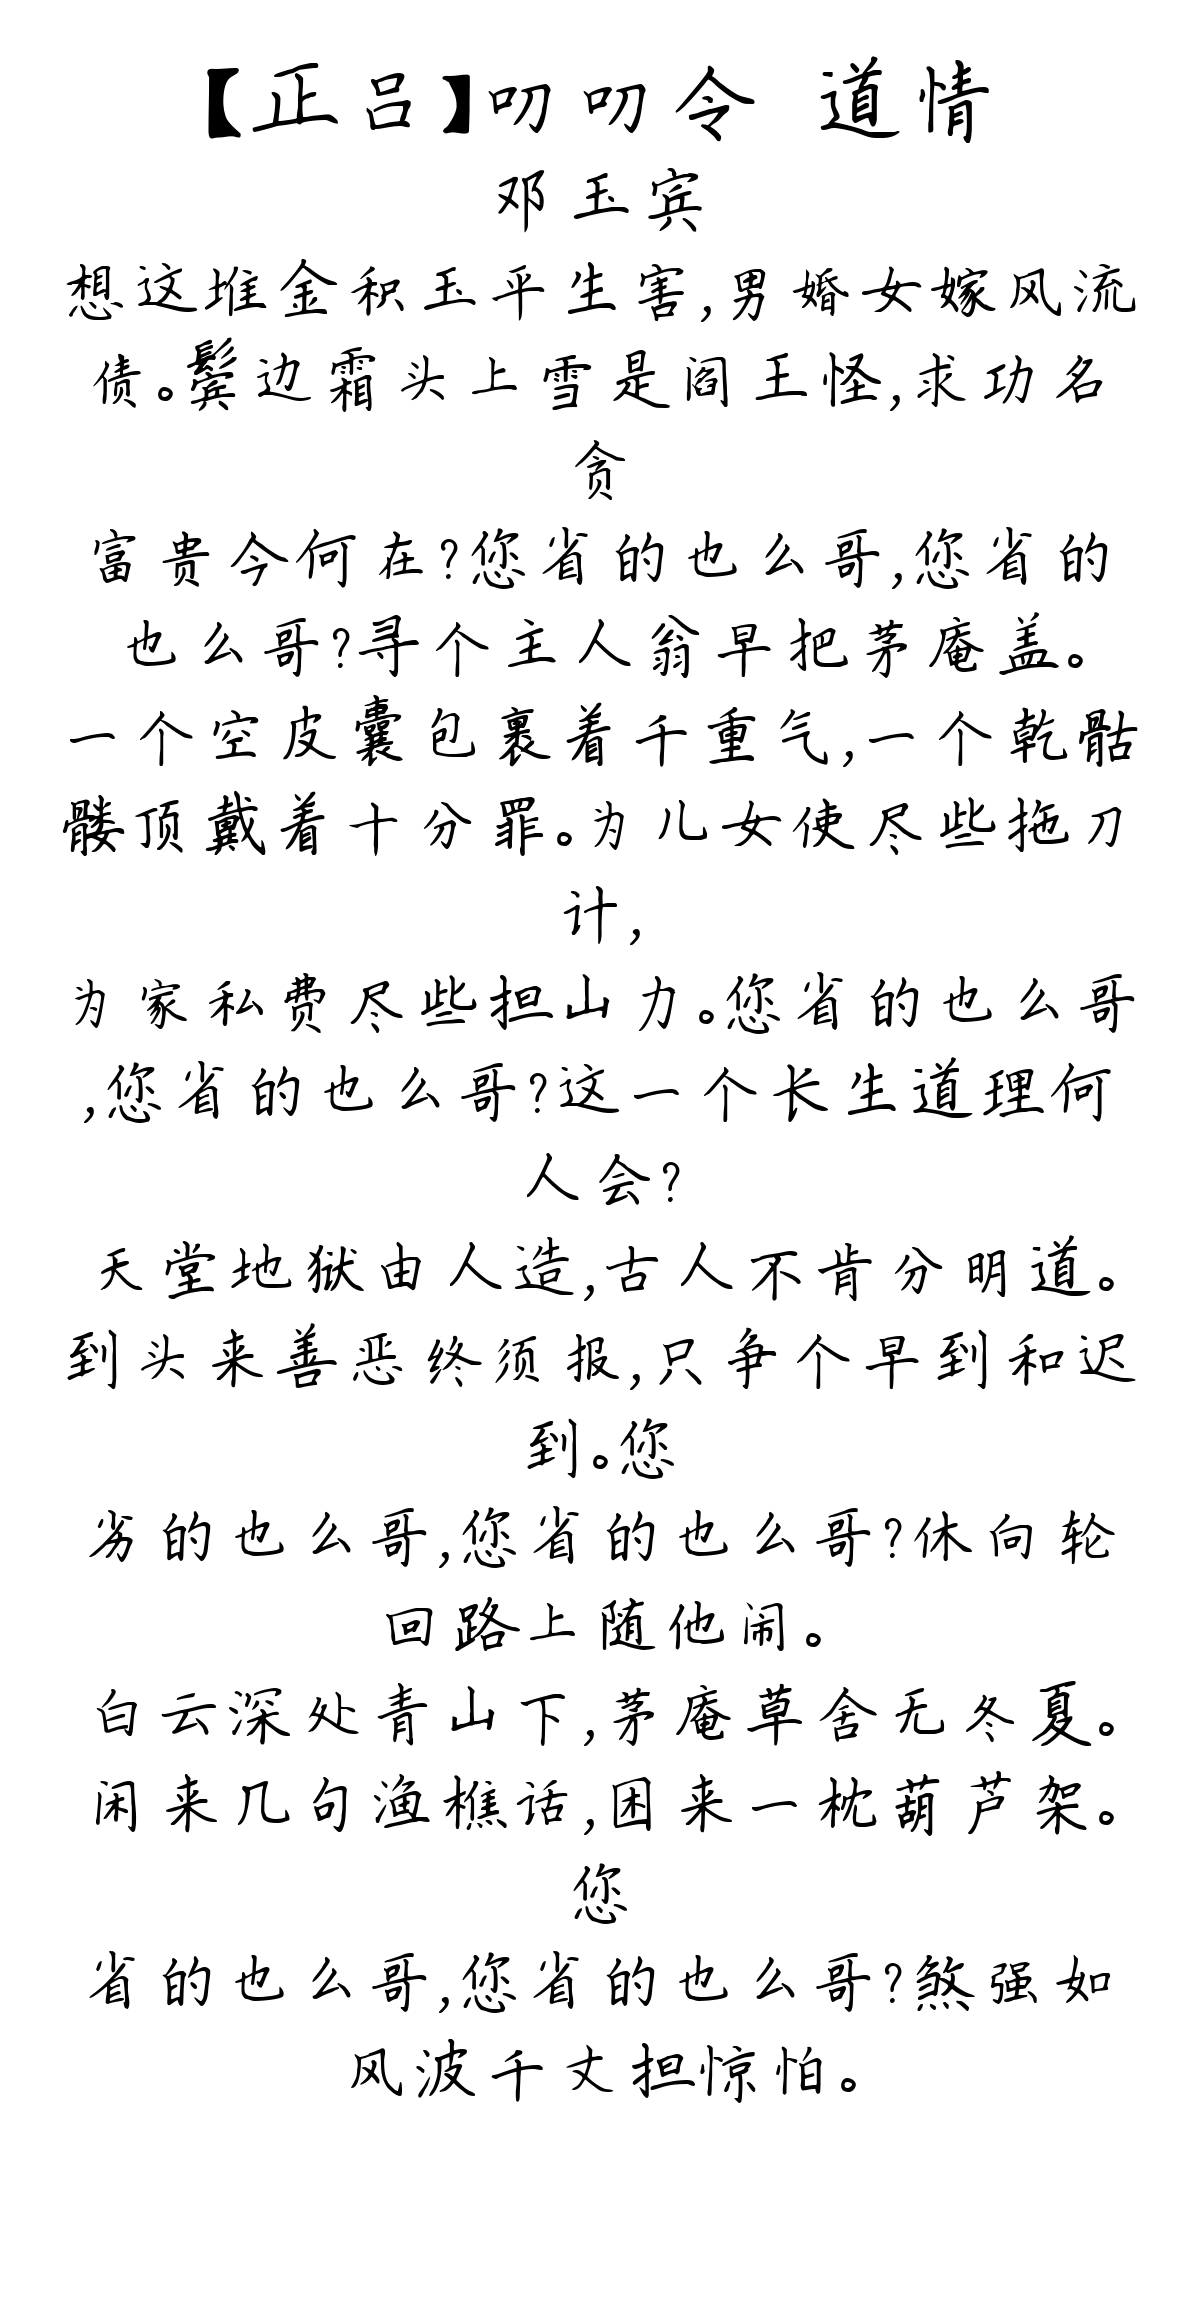 【正吕】叨叨令 道情
邓玉宾
想这堆金积玉平生害,男婚女嫁风流
债。鬓边霜头上雪是阎王怪,求功名
贪
富贵今何在?您省的也么哥,您省的
也么哥?寻个主人翁早把茅庵盖。
一个空皮囊包裹着千重气,一个乾骷
髅顶戴着十分罪。为儿女使尽些拖刀
计,
为家私费尽些担山力。您省的也么哥
,您省的也么哥?这一个长生道理何
人会?
天堂地狱由人造,古人不肯分明道。
到头来善恶终须报,只争个早到和迟
到。您
省的也么哥,您省的也么哥?休向轮
回路上随他闹。
白云深处青山下,茅庵草舍无冬夏。
闲来几句渔樵话,困来一枕葫芦架。
您
省的也么哥,您省的也么哥?煞强如
风波千丈担惊怕。